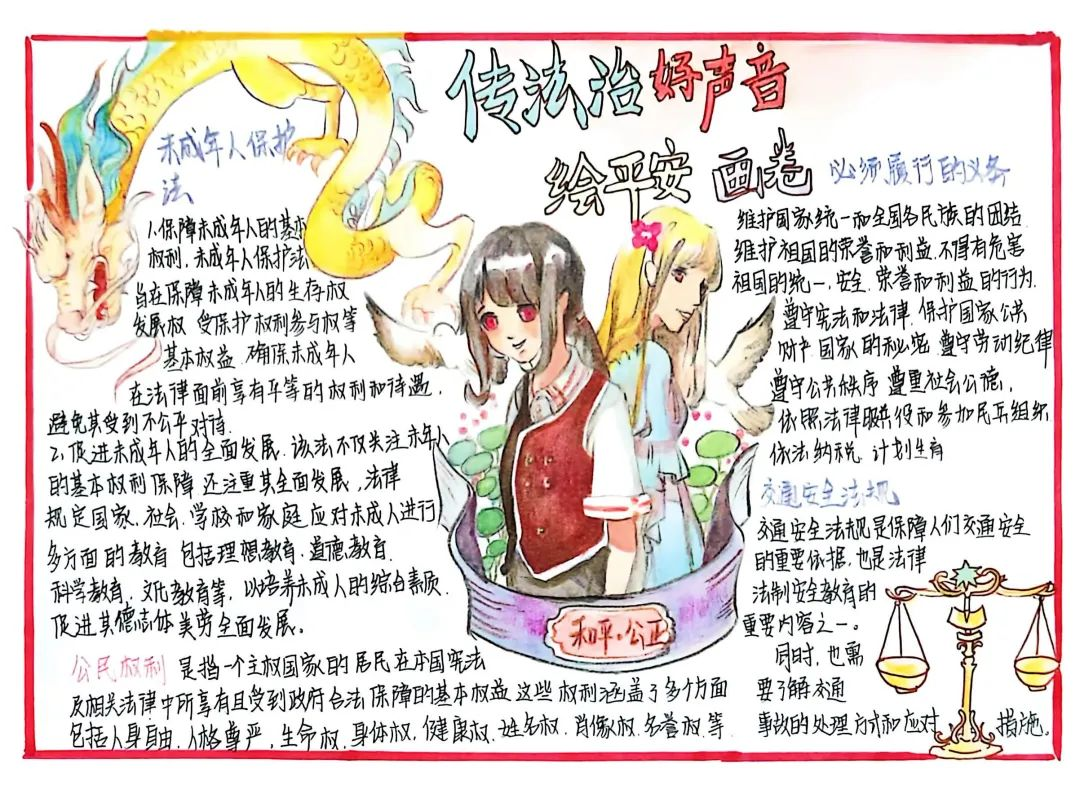 传法治好声音
绘平安画卷
未成年人保护
法
1.保障未成年人的基本
权利,未成年人保护法
旨在保障未成年人的生存权
发展权 受保护权利参与权等
基本权益 确保未成年人
在法律面前享有平等的权利和待遇,
避免其受到不公平对待.
2.促进未成年人的全面发展.该法不仅关注未年人
的基本权利保障 还注重其全面发展,法律
规定国家.社会.学校和家庭应对未成人进行
多方面的教育 包括理想教育.道德教育.
科学教育.文化教育等,以培养未成人的综合素质.
促进其德志体美劳全面发展。
公民权利 是指一个主权国家的居民在本国宪法
及相关法律中所享有且受到政府合法保障的基本权益 这些权利涵盖了多个方面
包括人身自由.人格尊严,生命权.身体权.健康权.姓名权.肖像权.名誉权等.
必须履行的义务
维护国家统一和全国各民族的团结.
维护祖国的荣誉和利益.不得有危害
祖国的统一,安全.荣誉和利益的行为.
遵守宪法和法律.保护国家公共
财产 国家的秘密 遵守劳动纪律
遵守公共秩序 尊重社会公德,
依照法律服兵役和参加民兵组织.
依法纳税 计划生育
交通安全法规
交通安全法规是保障人们交通安全
的重要依据,也是法律
法制安全教育的
重要内容之一。
同时,也需
要了解交通
事故的处理方式和应对 措施。
和平·公正